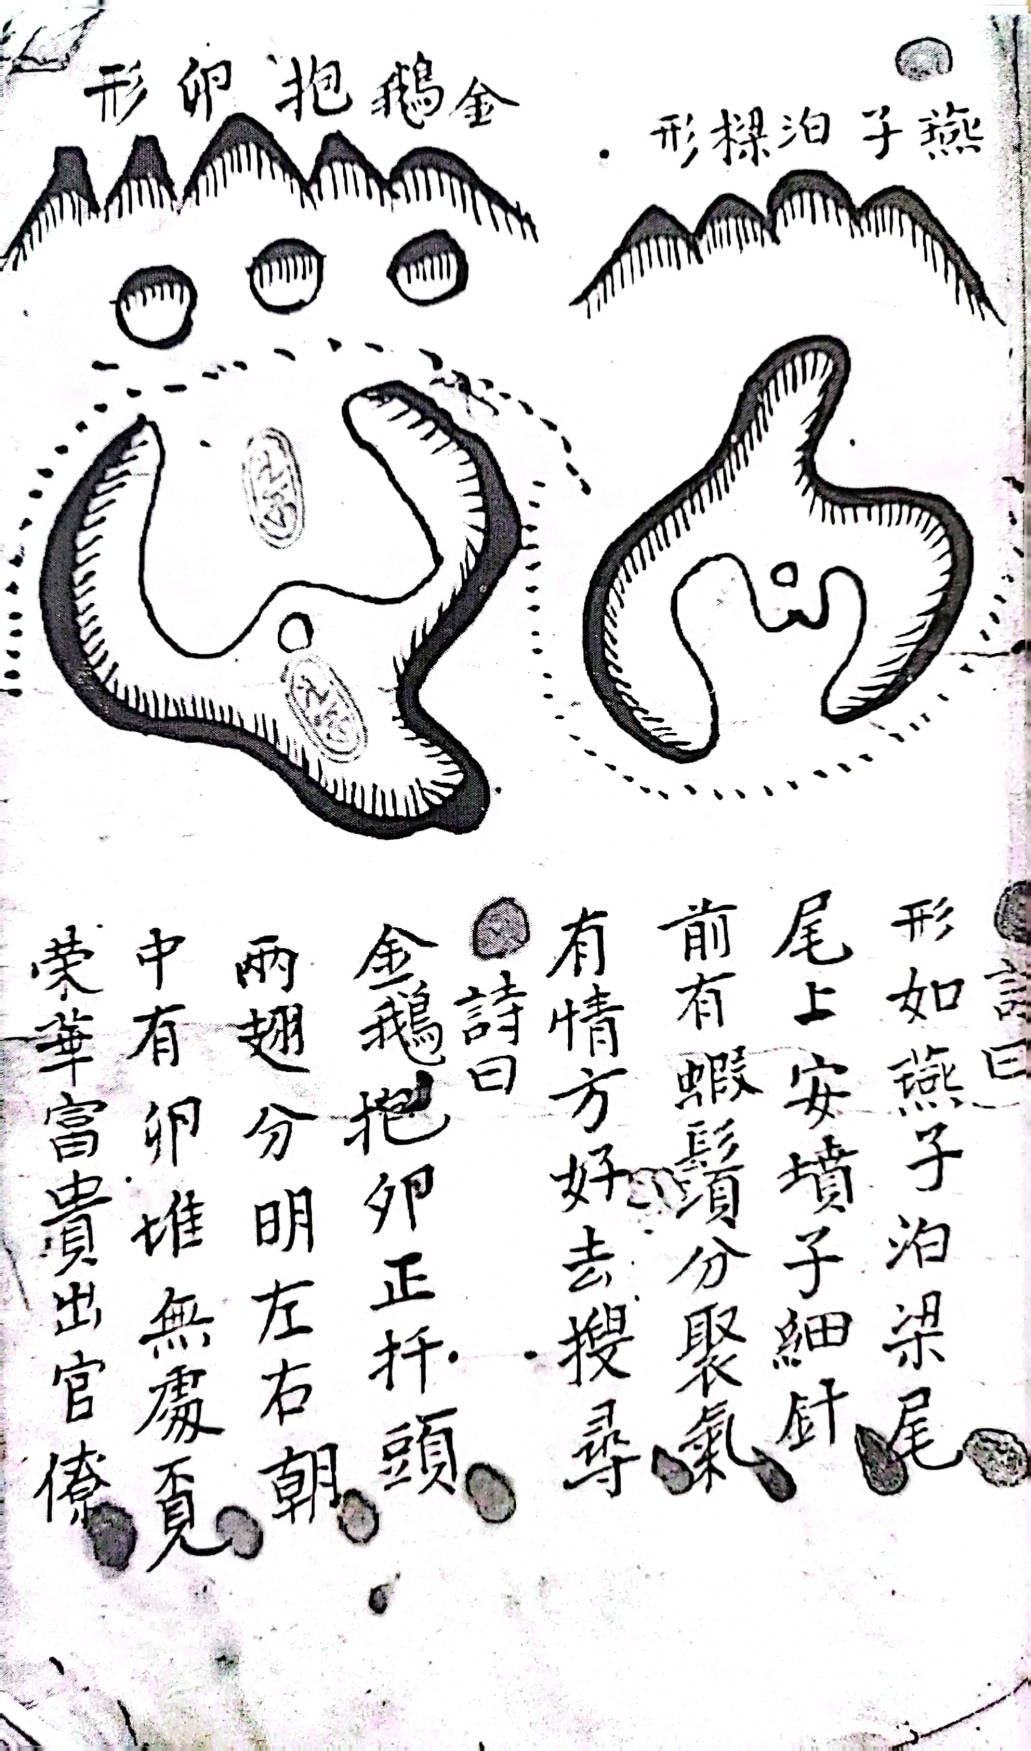 燕子泊樑形
詩曰
形如燕子泊梁尾
尾上安墳子細針
前有蝦鬚分聚氣
有情方好去搜尋
金鵝抱卵形
詩曰
金鵝抱卵正扦頭
兩翅分明左右朝
中有卵堆無處覓
荣華富貴出官僚